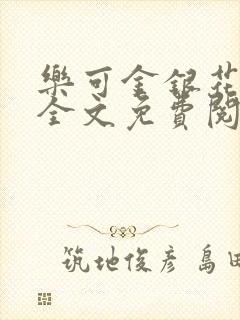 樂可金銀花
全文免費閱
筑地俊彦 島田